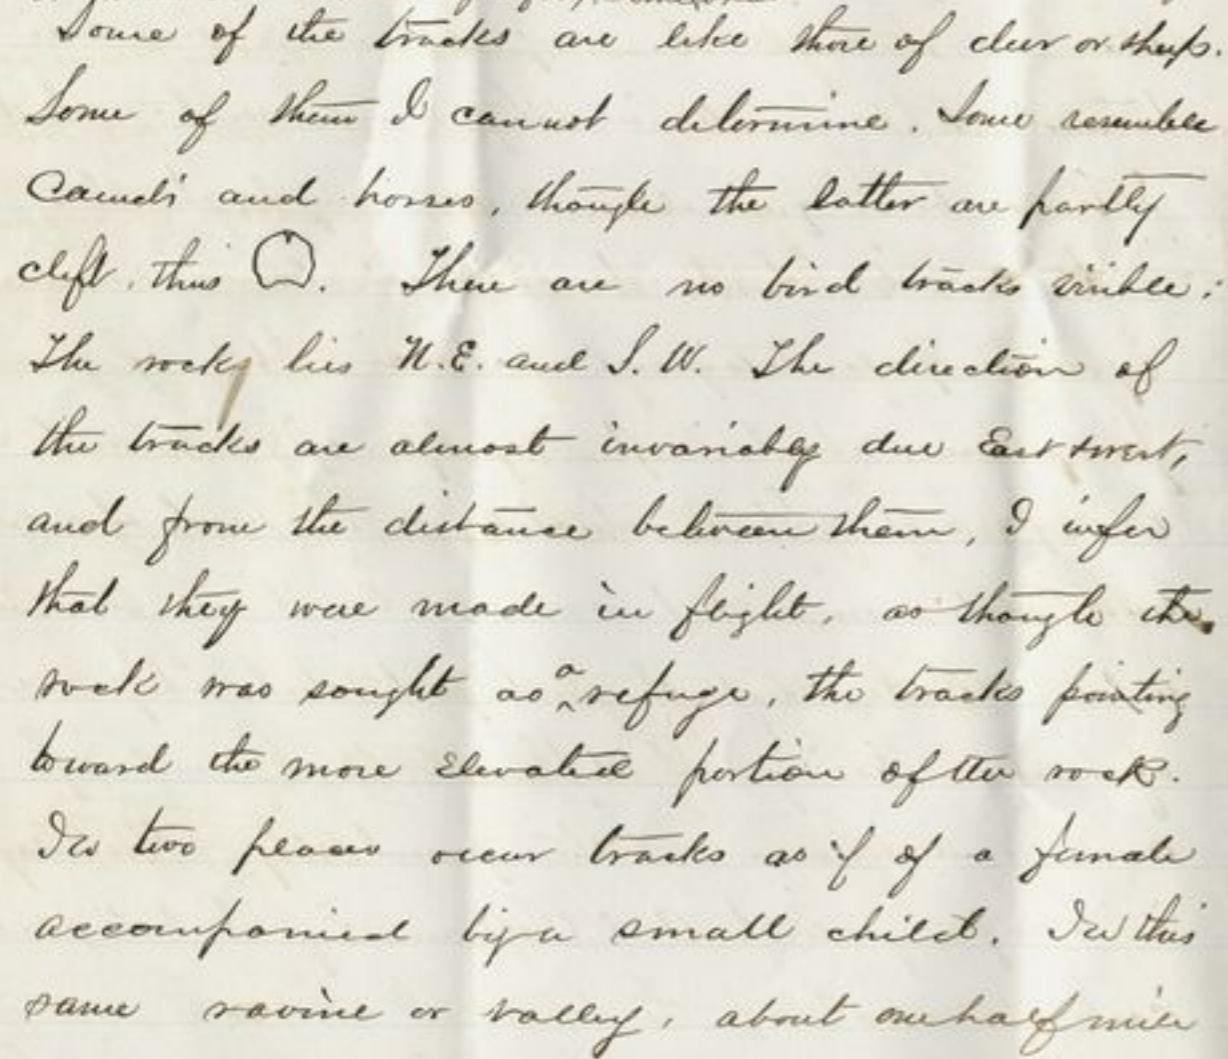 Some of the tracks are like those of deer or sheep.
Some of them I cannot determine. Some resemble
Camels and horses, though the latter are partly
cleft, thus . There are no bird tracks visible;
The rock lies N.E. and S.W. The direction of
the tracks are almost invariably due East + west,
and from the distance between them, I infer
that they were made in flight, as though the
rock was sought as a refuge, the tracks pointing
toward the more elevated portion of the rock.
In two places occur tracks as if of a female
accompanied by a small child. In this
same ravine or valley, about one half mile